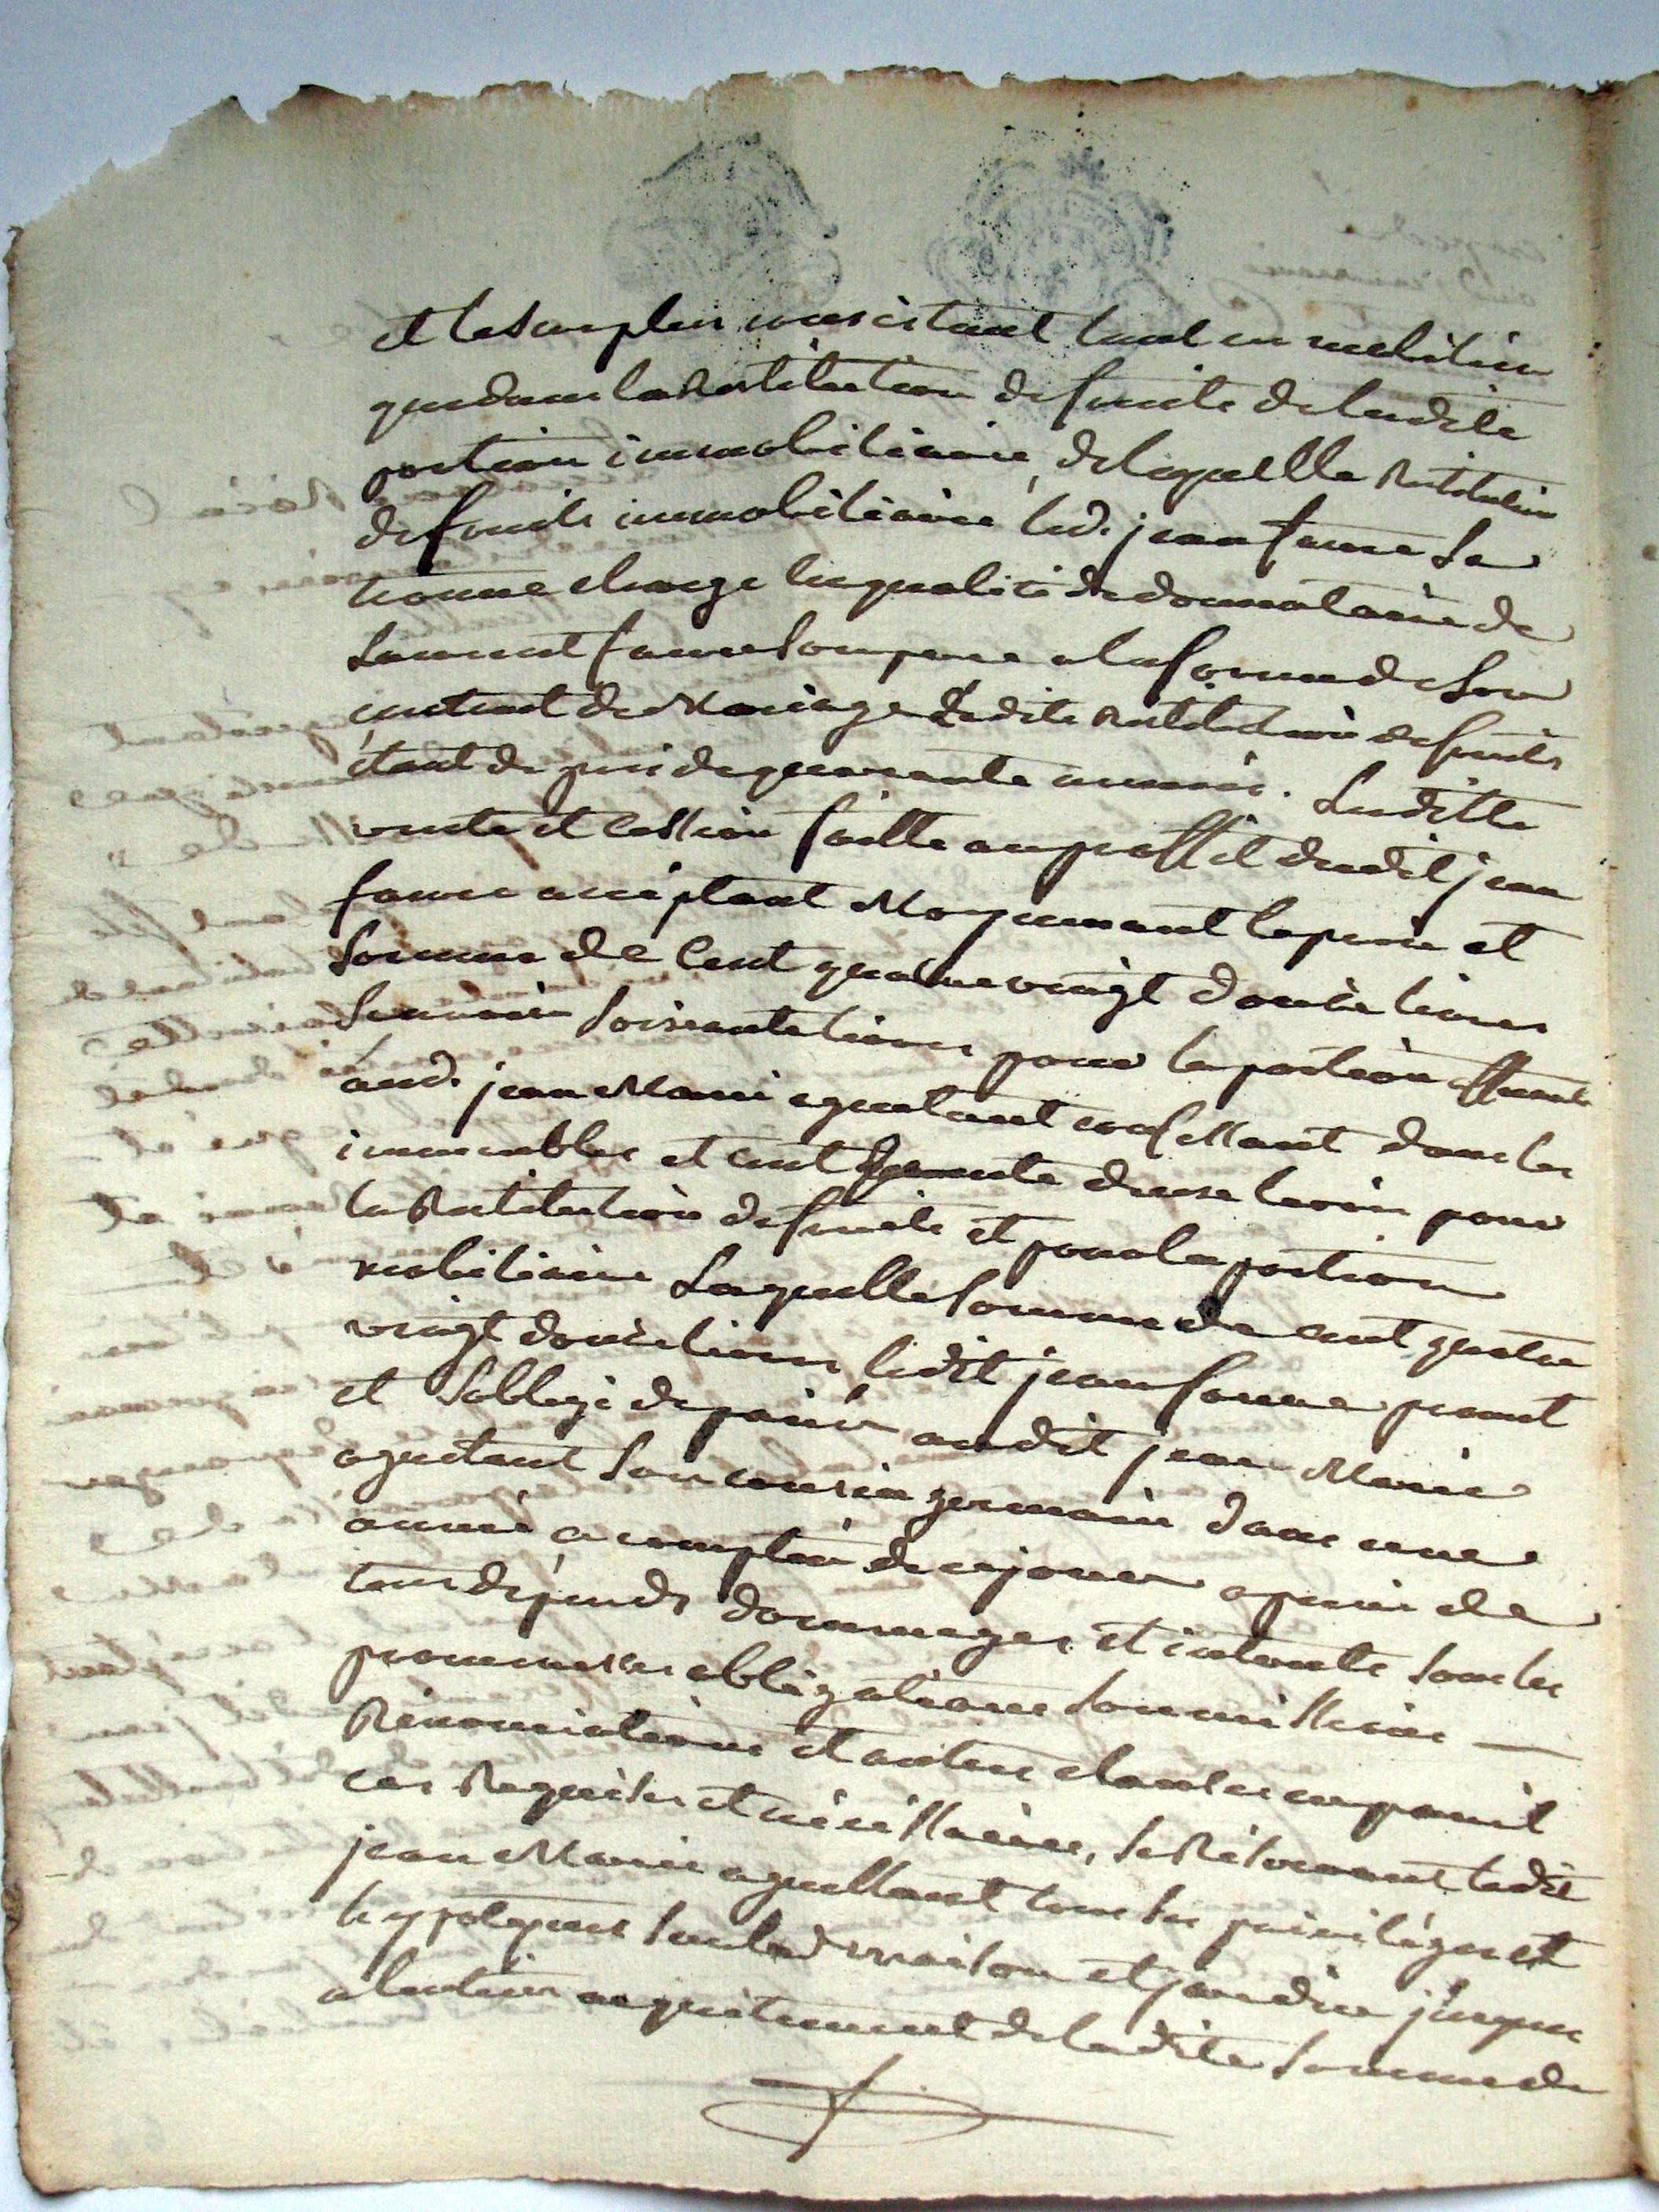 et le surplus consistant tant en mobilier
que dans la restitution de fruits de ladite
portion immobiliaire, de laquelle restitution
de fruits immobiliaire led. jean faure se
trouve charge en qualité de donnataire de
Laurent faure son pere a la forme de son
contract de Mariage Ladite restitution de fruits
étant de pres de quarante années. Laditte
vente et cession faitte au proffit dudit jean
faure acceptant Moyennant le prix et
somme de Cent quatre vingt douze livres
Scavoir soixante livres pour la portion afferante
aud. jean Marie aguetant confessant dans les
immeubles et cent trente deux livres pour
la restitution de fruits et pour la portion
mobiliaire Laquelle somme de cent quatre
vingt douze livres ledit jean faure promet
et soblige de paier audit jean Marie
aguetant son cousin germain dans une
année a compter de ce jour a peine de
tous dépends dommages et interets sous les
promesses obligations soumissions
Rénonciations et autres clauses en pareil
cas Requises et nécéssaires, se Réservant ledit
jean Marie aguettant tous ses priviléges et
hypoteques sur lad. maison et jardin jusques
a lentier acquittement de ladite somme de